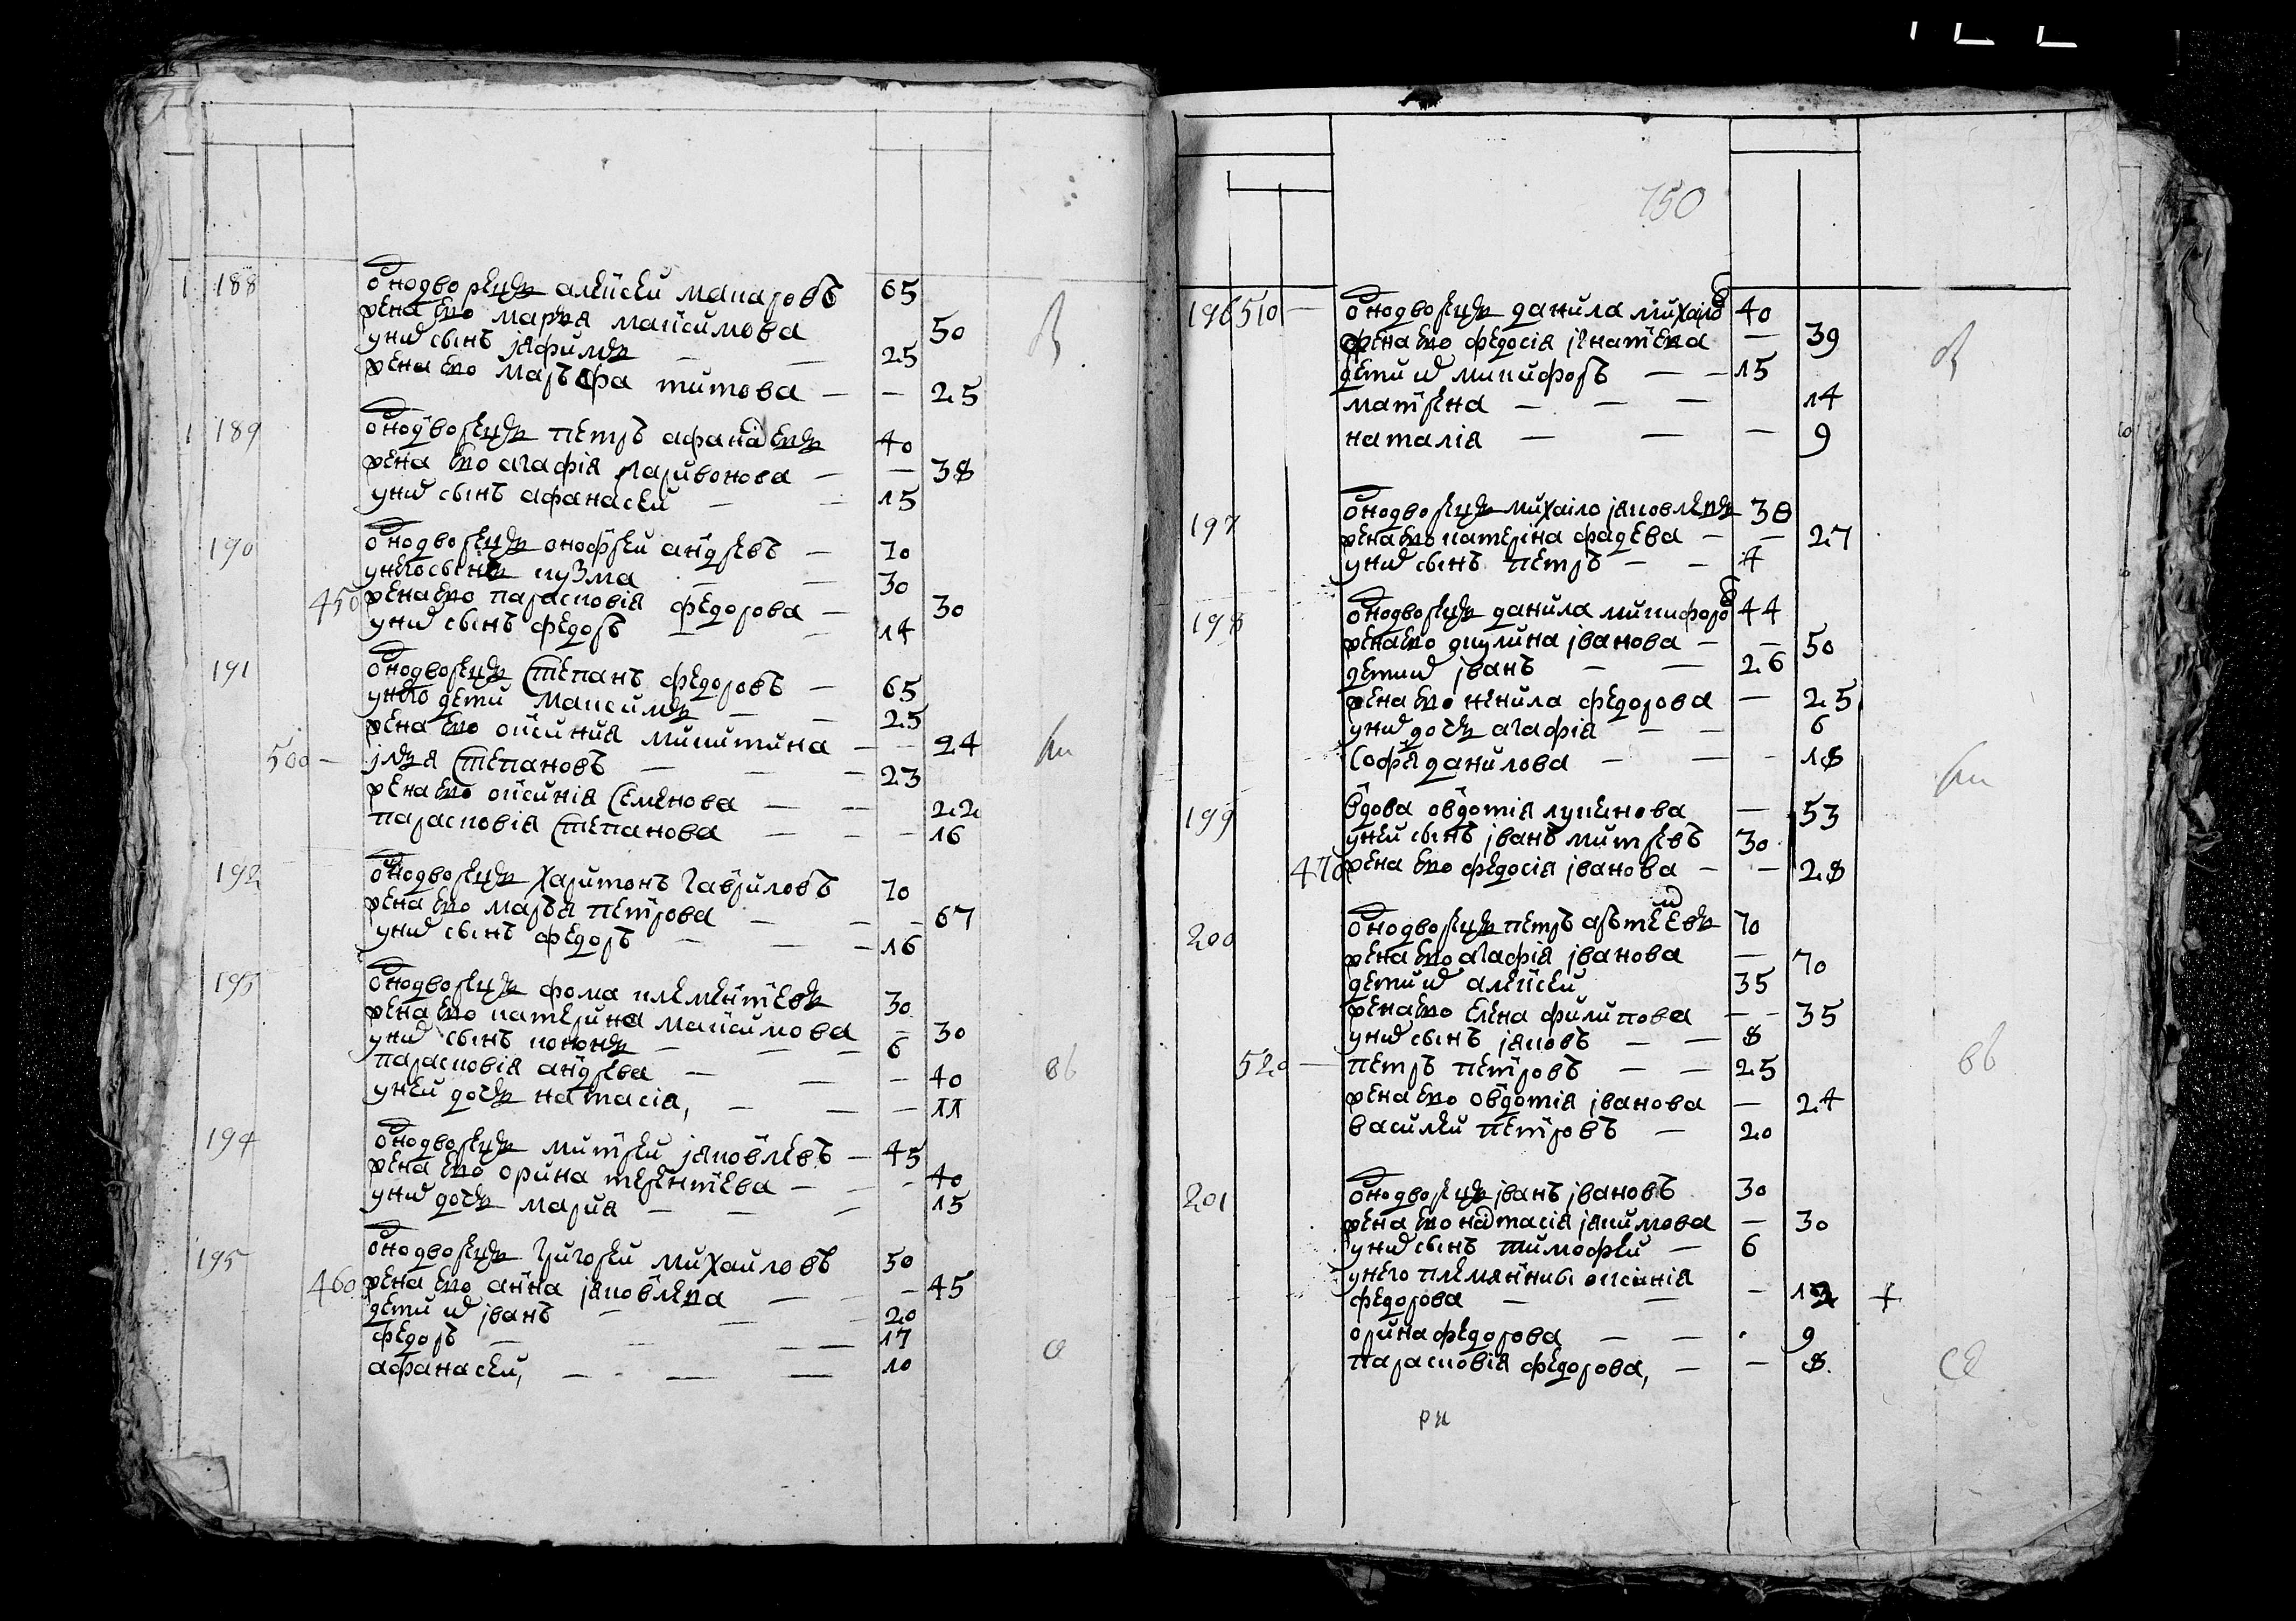 188 однодворецъ алеѯеи макаровъ 65
жена ево марья маѯимова 50
унихъ сынъ якимъ — — 25
жена ево марфа титова — — 25
189 однодворецъ петръ афанасьевъ 40
жена ево агафія ларивонова — — 38
унихъ сынъ афанасеи — — 15
190 однодворецъ онофреи андреевъ — 70
унего сынъ кузма — — 30
450 жена ево парасковія федорова — 30
унихъ сынъ федоръ — — 14
191 однодворецъ степанъ федоровъ — 65
унего дети максимъ — — 25
жена ево оѯиния микитина — — 24
500 — илья степановъ — — — 23
жена ево оѯинія семенова — — 22
парасковія степанова — — — 16
192 однодворецъ харитонъ гавриловъ 70
жена ево марья петрова — — — 67
унихъ сынъ федоръ — — — 16
193 однодворецъ фома клементьевъ 30
жена ево катерина маѯимова — 30
унихъ сынъ кононъ — — — 6
парасковія андреева — — — 40
унеи дочь настасія, — — — 11
194 однодворецъ митреи яковлевъ — 45
жена ево орина терентьева — — — 40
унихъ дочь мария — — — 15
195 однодворецъ григореи михаиловъ 50
460 жена ево анна яковлева — — — 45
дети ихъ иванъ — — — 20
федоръ — — — — 17
афанасеи, — — — 10
150
196 510 — однодворецъ данила михаиловъ 40
жена ево федосія игнатьева — 39
дети ихъ микифоръ — — 15
матрена — — — 14
наталія — — — 9
197 однодворецъ михаило яковлевъ 38
жена ево катерина фадеева — — 27
унихъ сынъ петръ — — 4
198 однодворецъ данила микифоровъ 44
жена ево акулина иванова — — 50
дети ихъ иванъ — — 26
жена ево ненила федорова — 25
унихъ дочь агафія — — 6
софья данилова — — — 18
199 вдова овдотія лукянова — 53
унеи сынъ иванъ митревъ 30
470 жена ево федосія иванова — — 28
200 однодворецъ петръ астеевъ 70
жена ево агафія иванова — 70
дети ихъ алеѯеи 35
жена ево елена филипова — — 35
унихъ сынъ яковъ — — 8
520 — петръ петровъ — — 25
жена ево овдотія иванова — 24
василеи петровъ — 20
201 однодворецъ иванъ ивановъ 30
жена ево настасія якимова — 30
унихъ сынъ тимофеи — 6
унего племянницы оѯинія
федорова — — — 12 +
орина федорова — — 9
парасковія федорова, — — 8